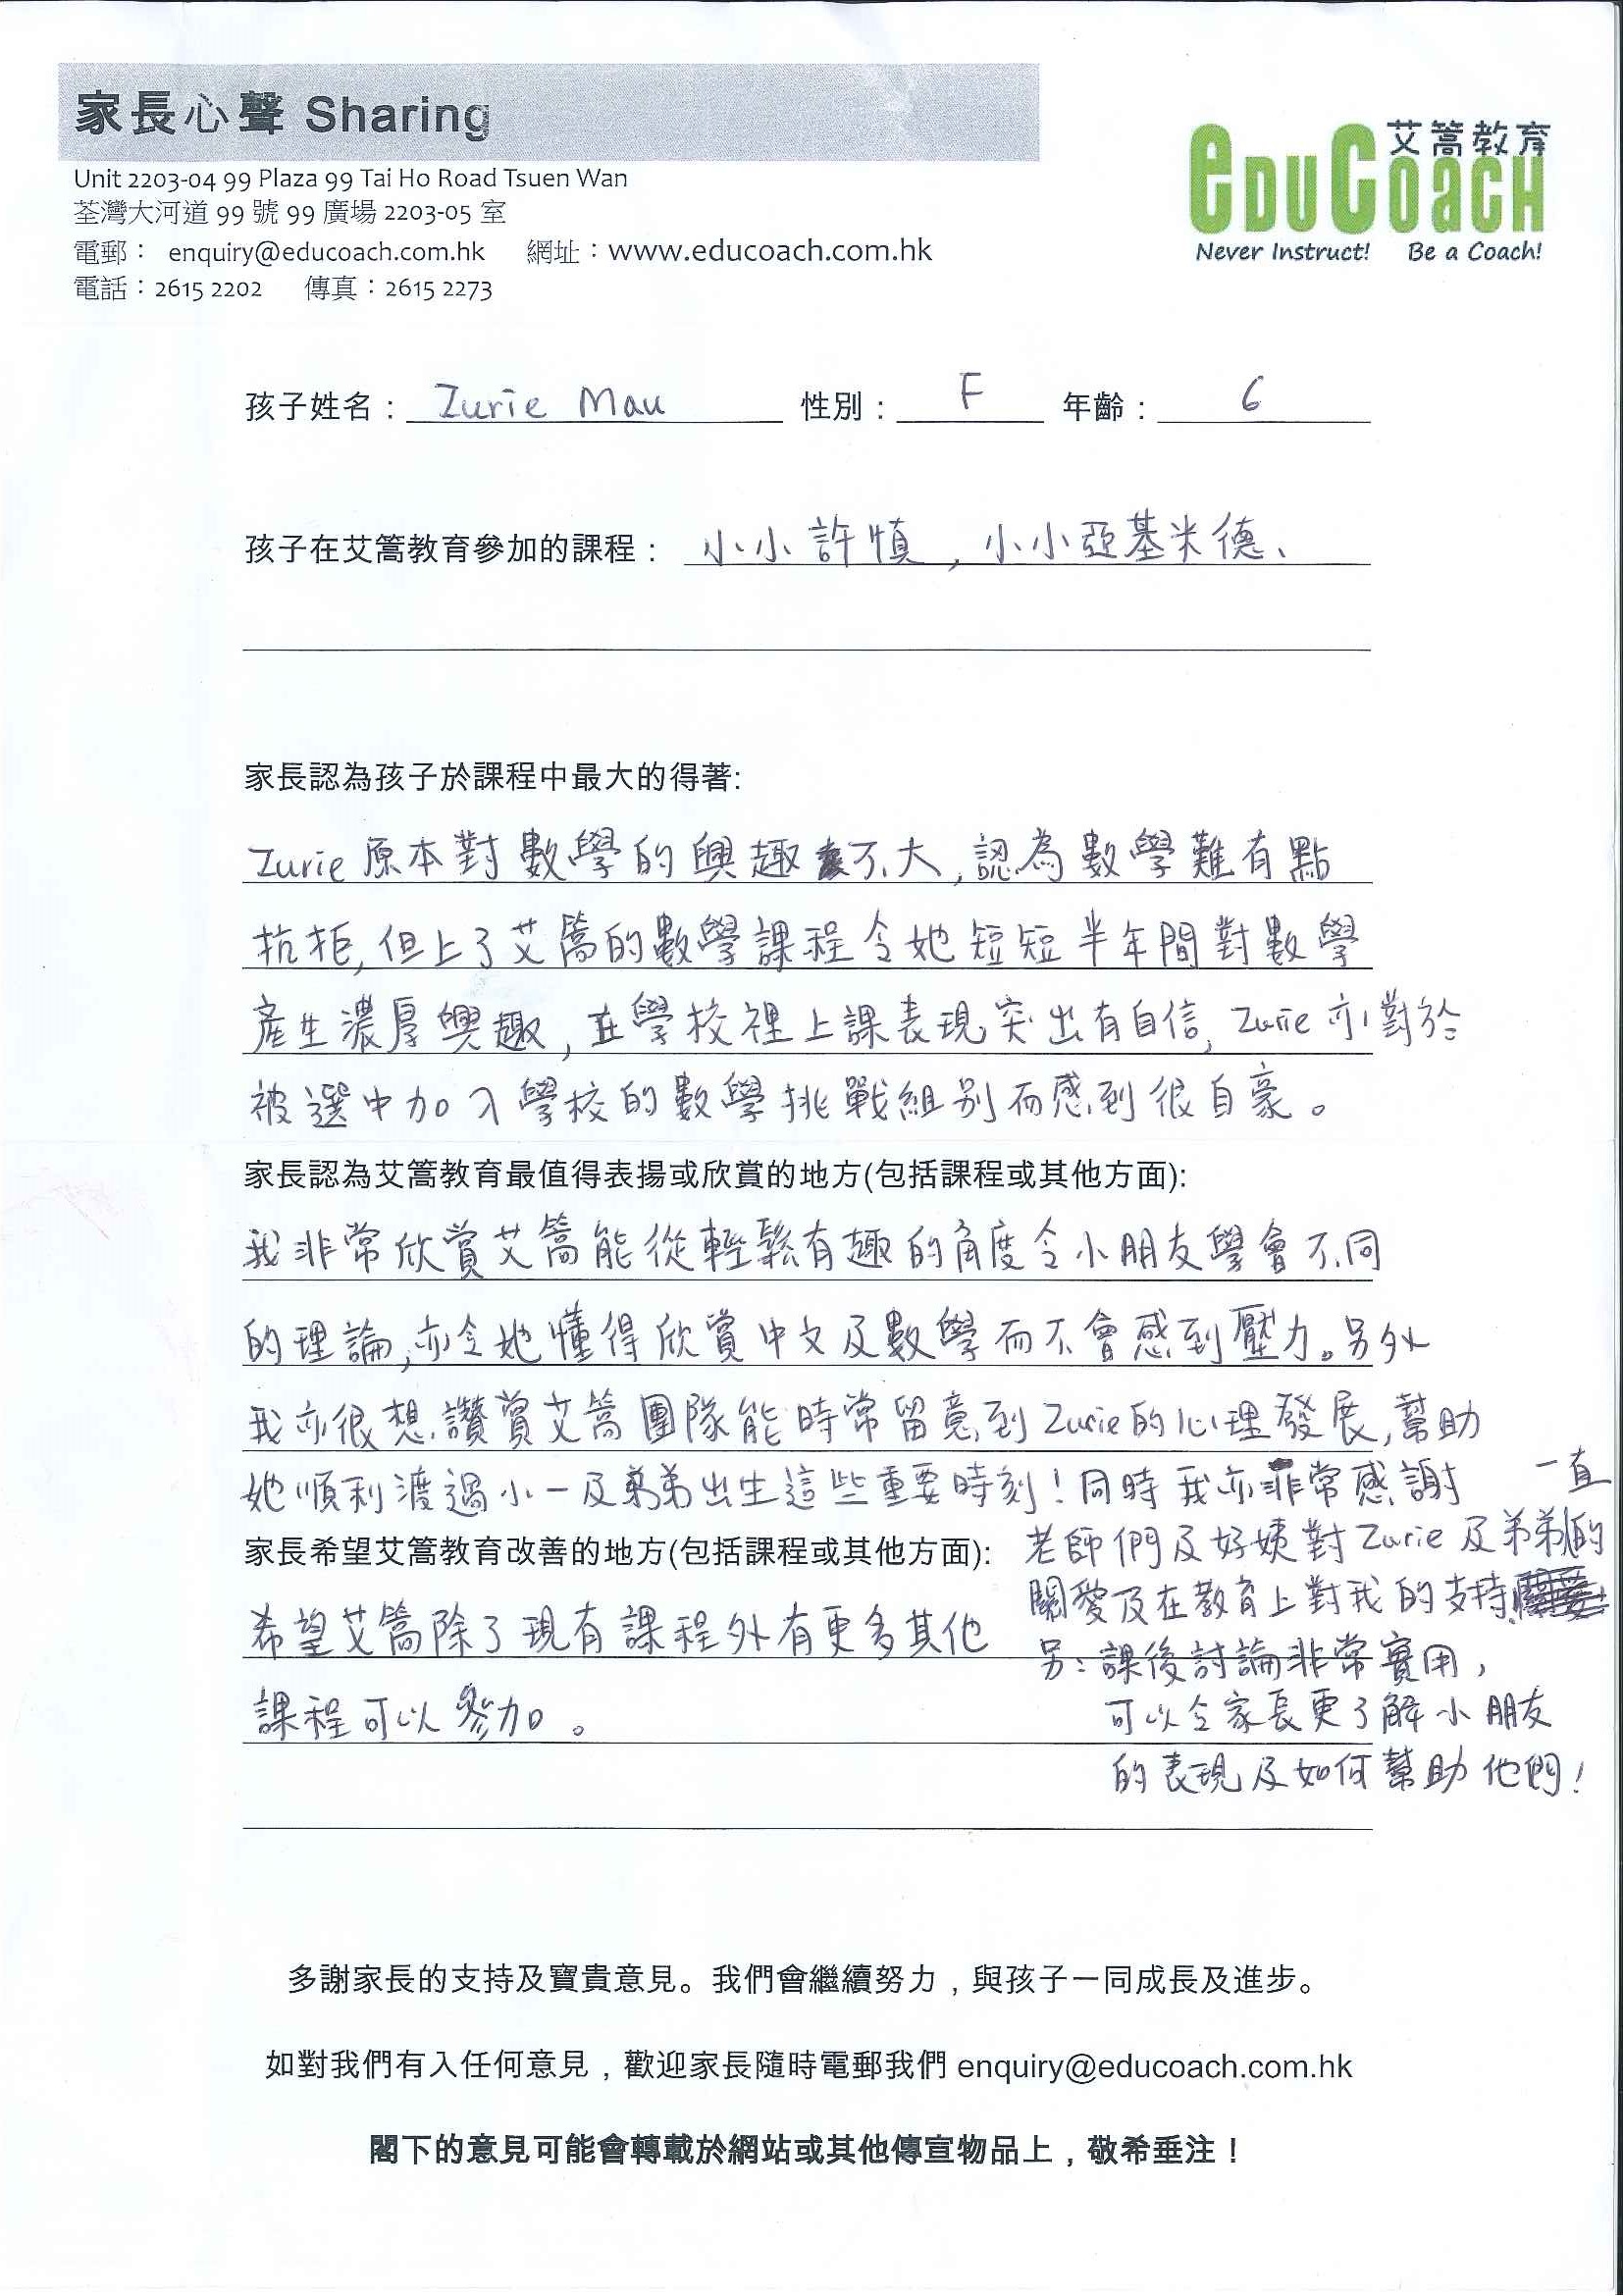 家長心聲 Sharing
艾篙教育
eDUCoacH
Never Instruct! Be a Coach!
Unit 2203-04 99 Plaza 99 Tai Ho Road Tsuen Wan
荃灣大河道 99 號 99 廣場 2203-05 室
電郵： enquiry@educoach.com.hk 網址：www.educoach.com.hk
電話：2615 2202 傳真：2615 2273
孩子姓名： Zurie Mau 性別： F 年齡： 6
孩子在艾篙教育參加的課程： 小小許慎，小小亞基米德、
家長認為孩子於課程中最大的得著:
Zurie原本對數學的興趣不大,認為數學難有點
抗拒,但上了艾篙的數學課程令她短短半年間對數學
產生濃厚興趣,在學校裡上課表現突出有自信,Zurie亦對於
被選中加入學校的數學挑戰組別而感到很自豪。
家長認為艾篙教育最值得表揚或欣賞的地方(包括課程或其他方面):
我非常欣賞艾篙能從輕鬆有趣的角度令小朋友學會不同
的理論,亦令她懂得欣賞中文及數學而不會感到壓力。另外
我亦很想讚賞艾篙團隊能時常留意到Zurie的心理發展,幫助
她順利渡過小一及弟弟出生這些重要時刻!同時我亦非常感謝 一直
老師們及好姨對Zurie及弟弟的
關愛及在教育上對我的支持!
另：課後討論非常實用，
可以令家長更了解小朋友
的表現及如何幫助他們!
家長希望艾篙教育改善的地方(包括課程或其他方面):
希望艾篙除了現有課程外有更多其他
課程可以參加。
多謝家長的支持及寶貴意見。我們會繼續努力，與孩子一同成長及進步。
如對我們有入任何意見，歡迎家長隨時電郵我們 enquiry@educoach.com.hk
閣下的意見可能會轉載於網站或其他傳宣物品上，敬希垂注！